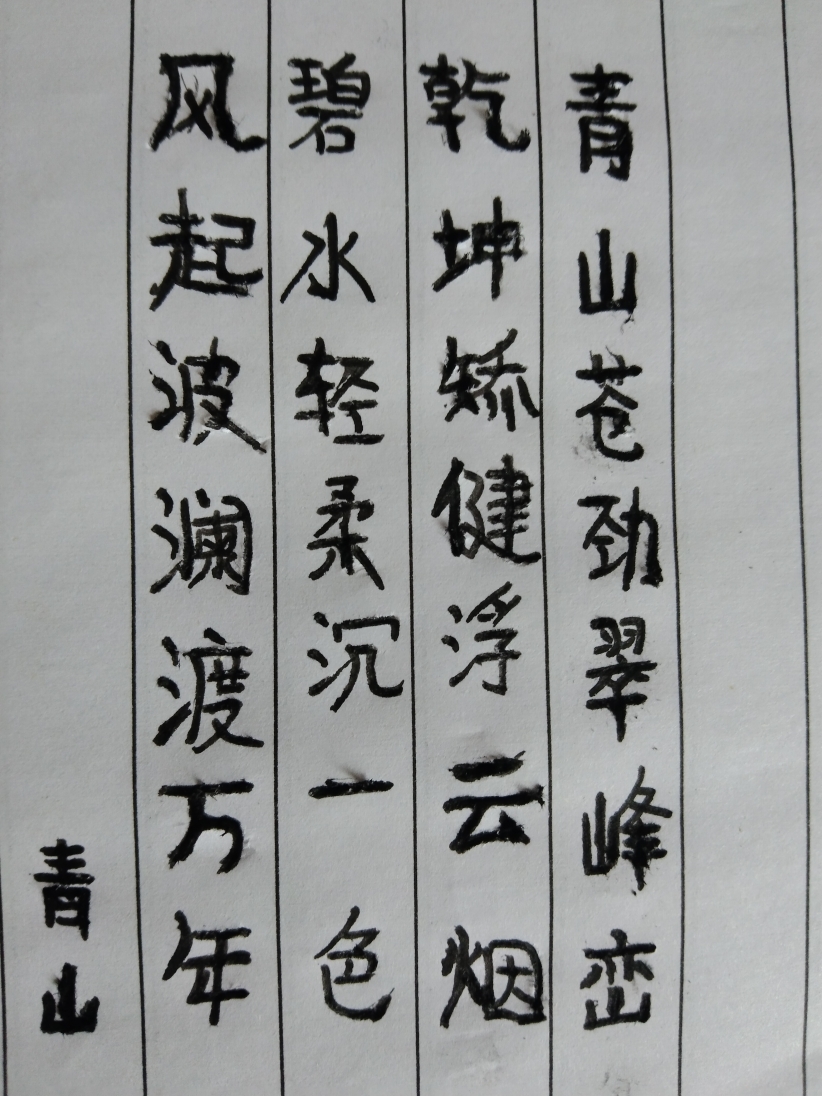 青山苍劲翠峰峦
乾坤矫健浮云烟
碧水轻柔沉一色
风起波澜渡万年
青山